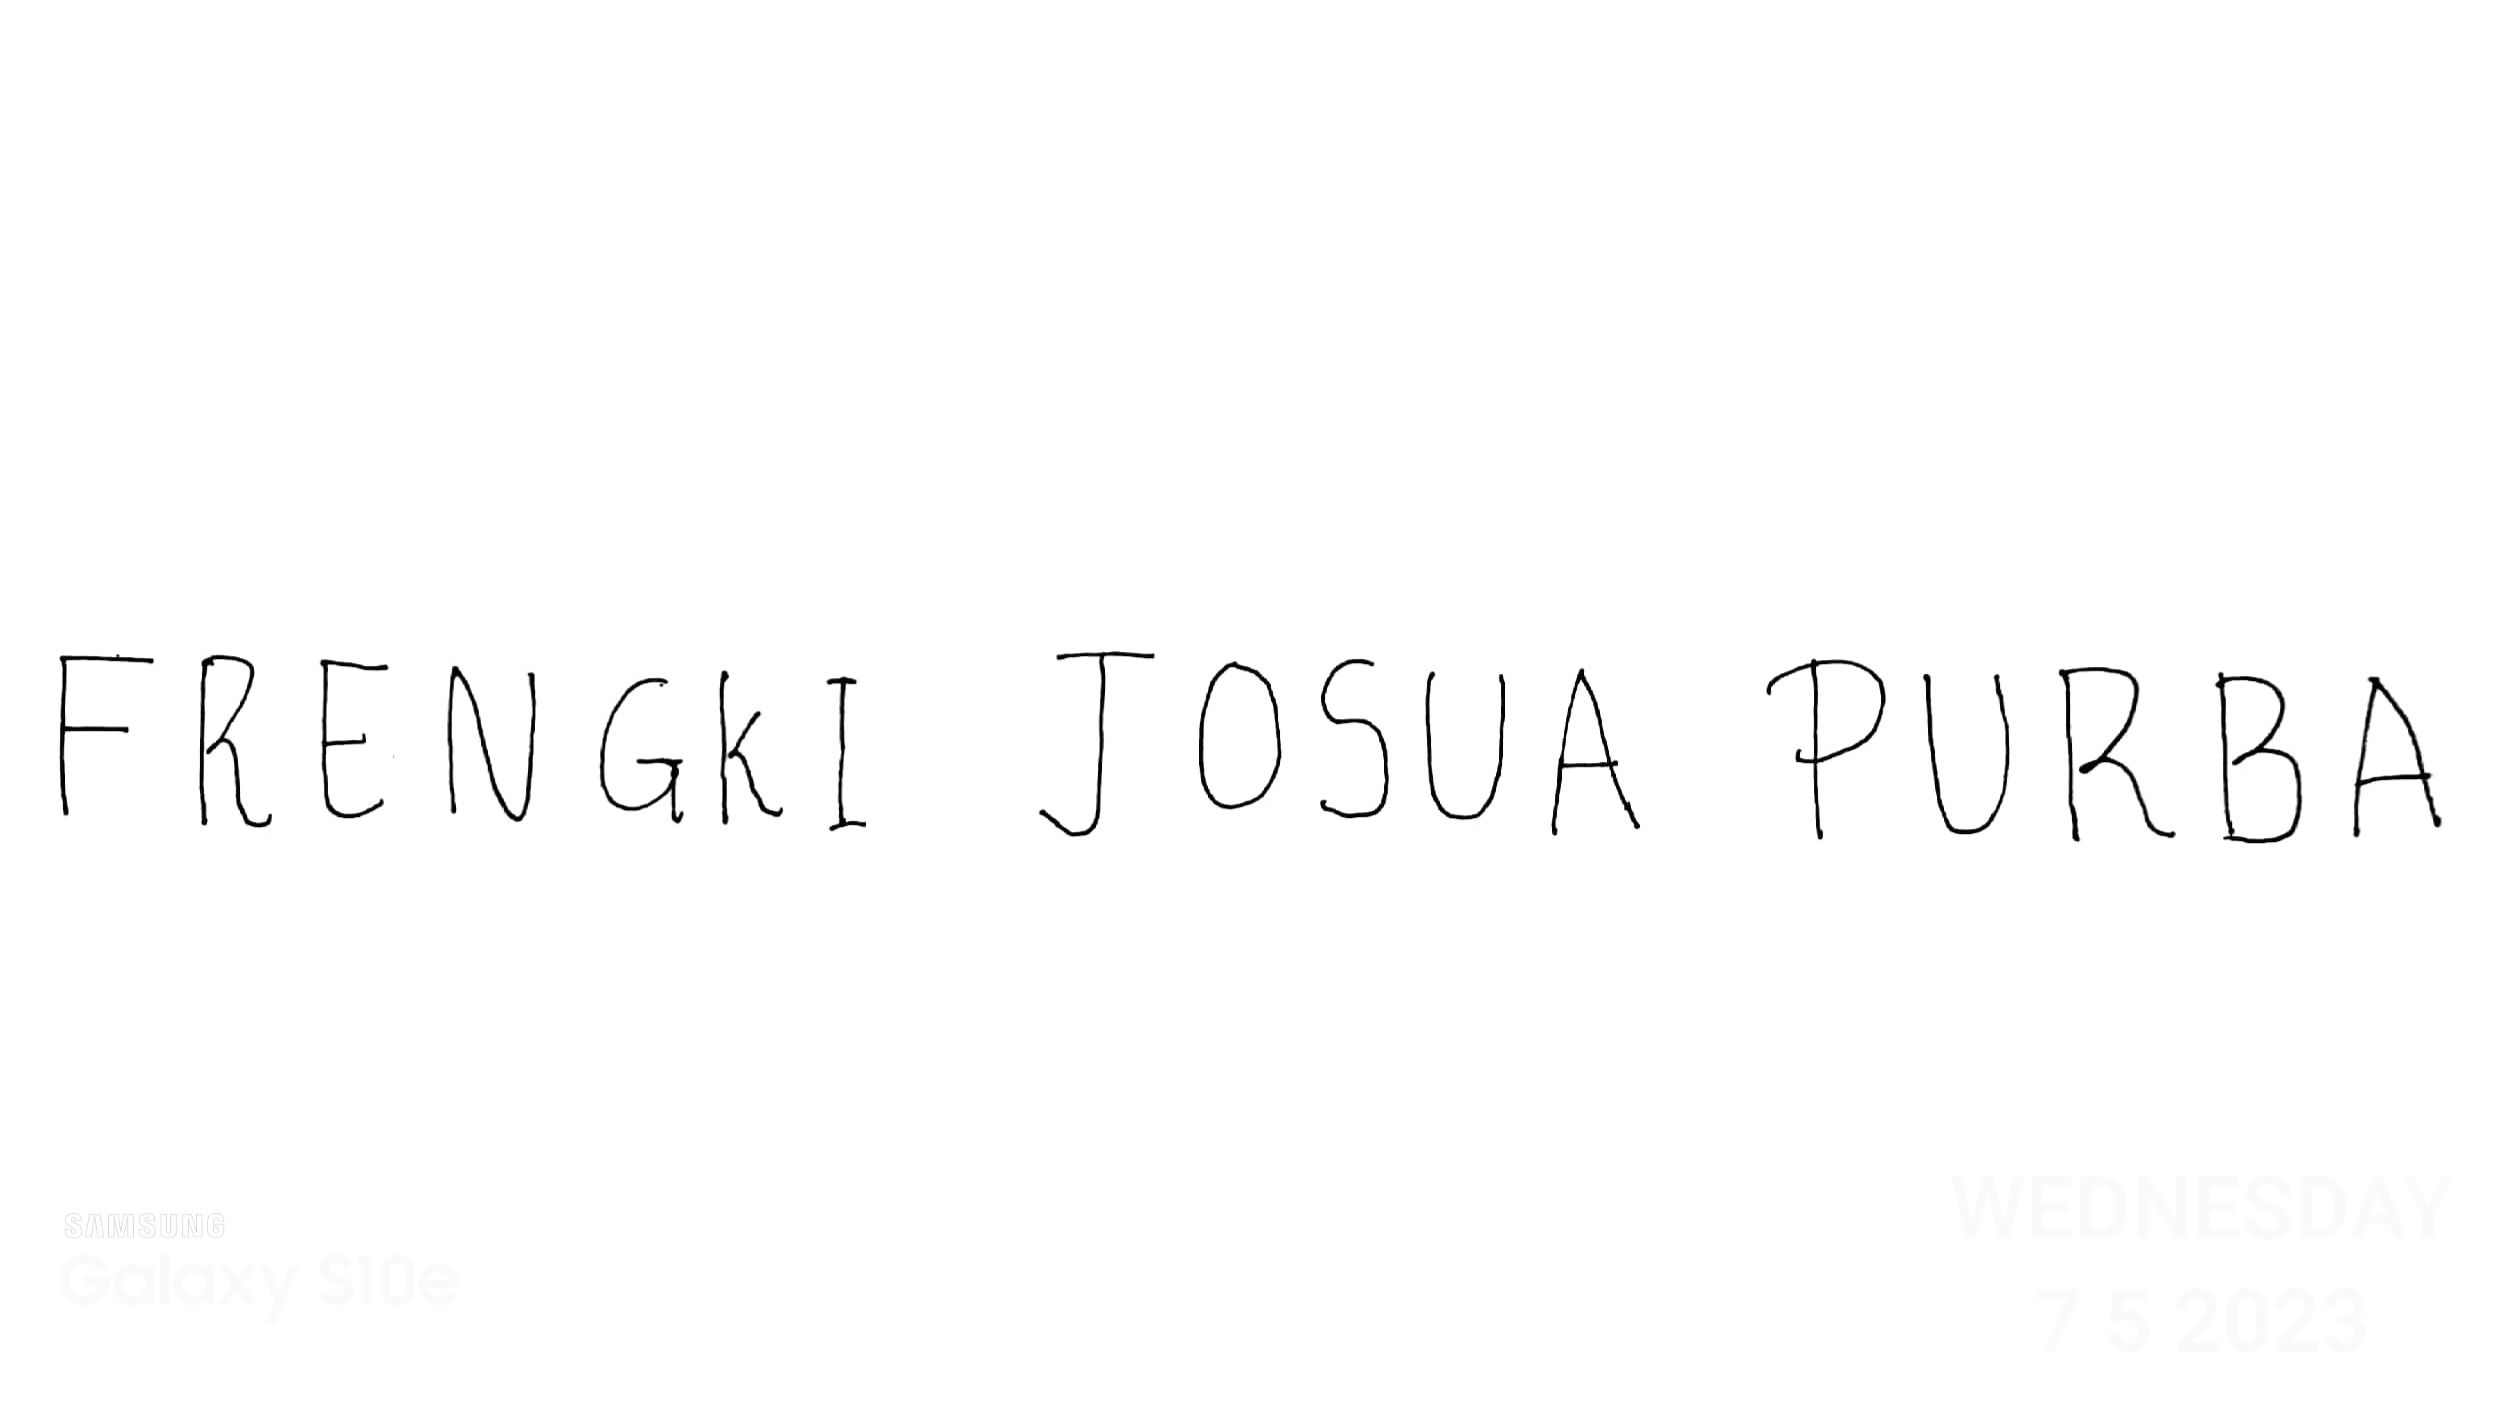 FRENGkI JOSUA PURBA
SAMSUNG
Galaxy S10e
WEDNESDAY
7 5 2023